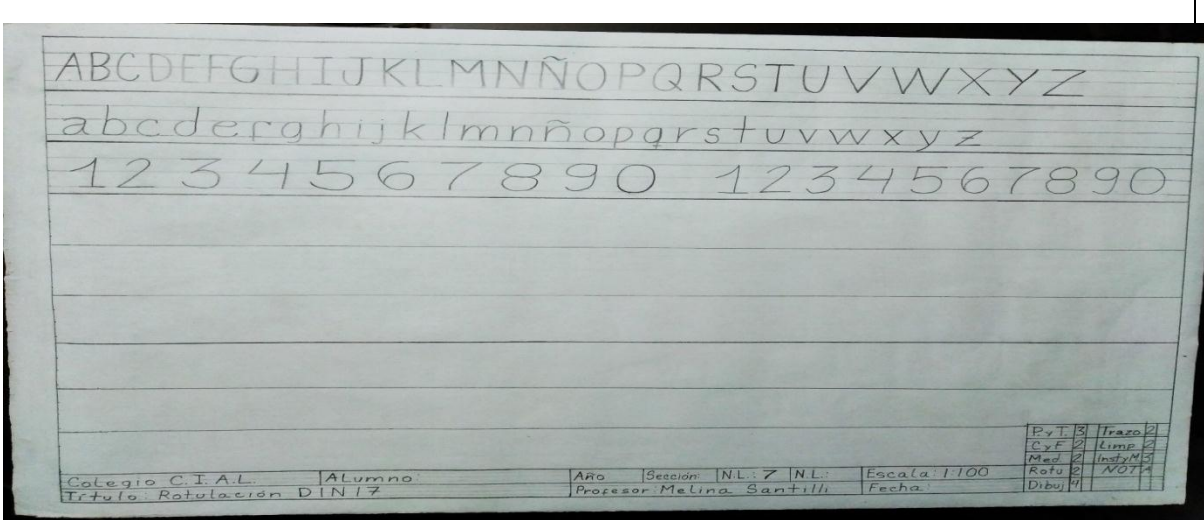 ABCDEFGHIJKLMNÑOPQRSTUVWXYZ
abcdefghijklmnñopqrstuvwxyz
1234567890 1234567890
P.yT. 3 Trazo 2
CyF 2 Limp 2
Med 2 InstyM 3
Rotu 2 NOTA
Dibuj 4
Colegio C.I.A.L. ALumno: Año Sección: N.L.: 7 N.L.: Escala: 1:100
Título: Rotulación DIN 17 Profesor: Melina Santilli Fecha: